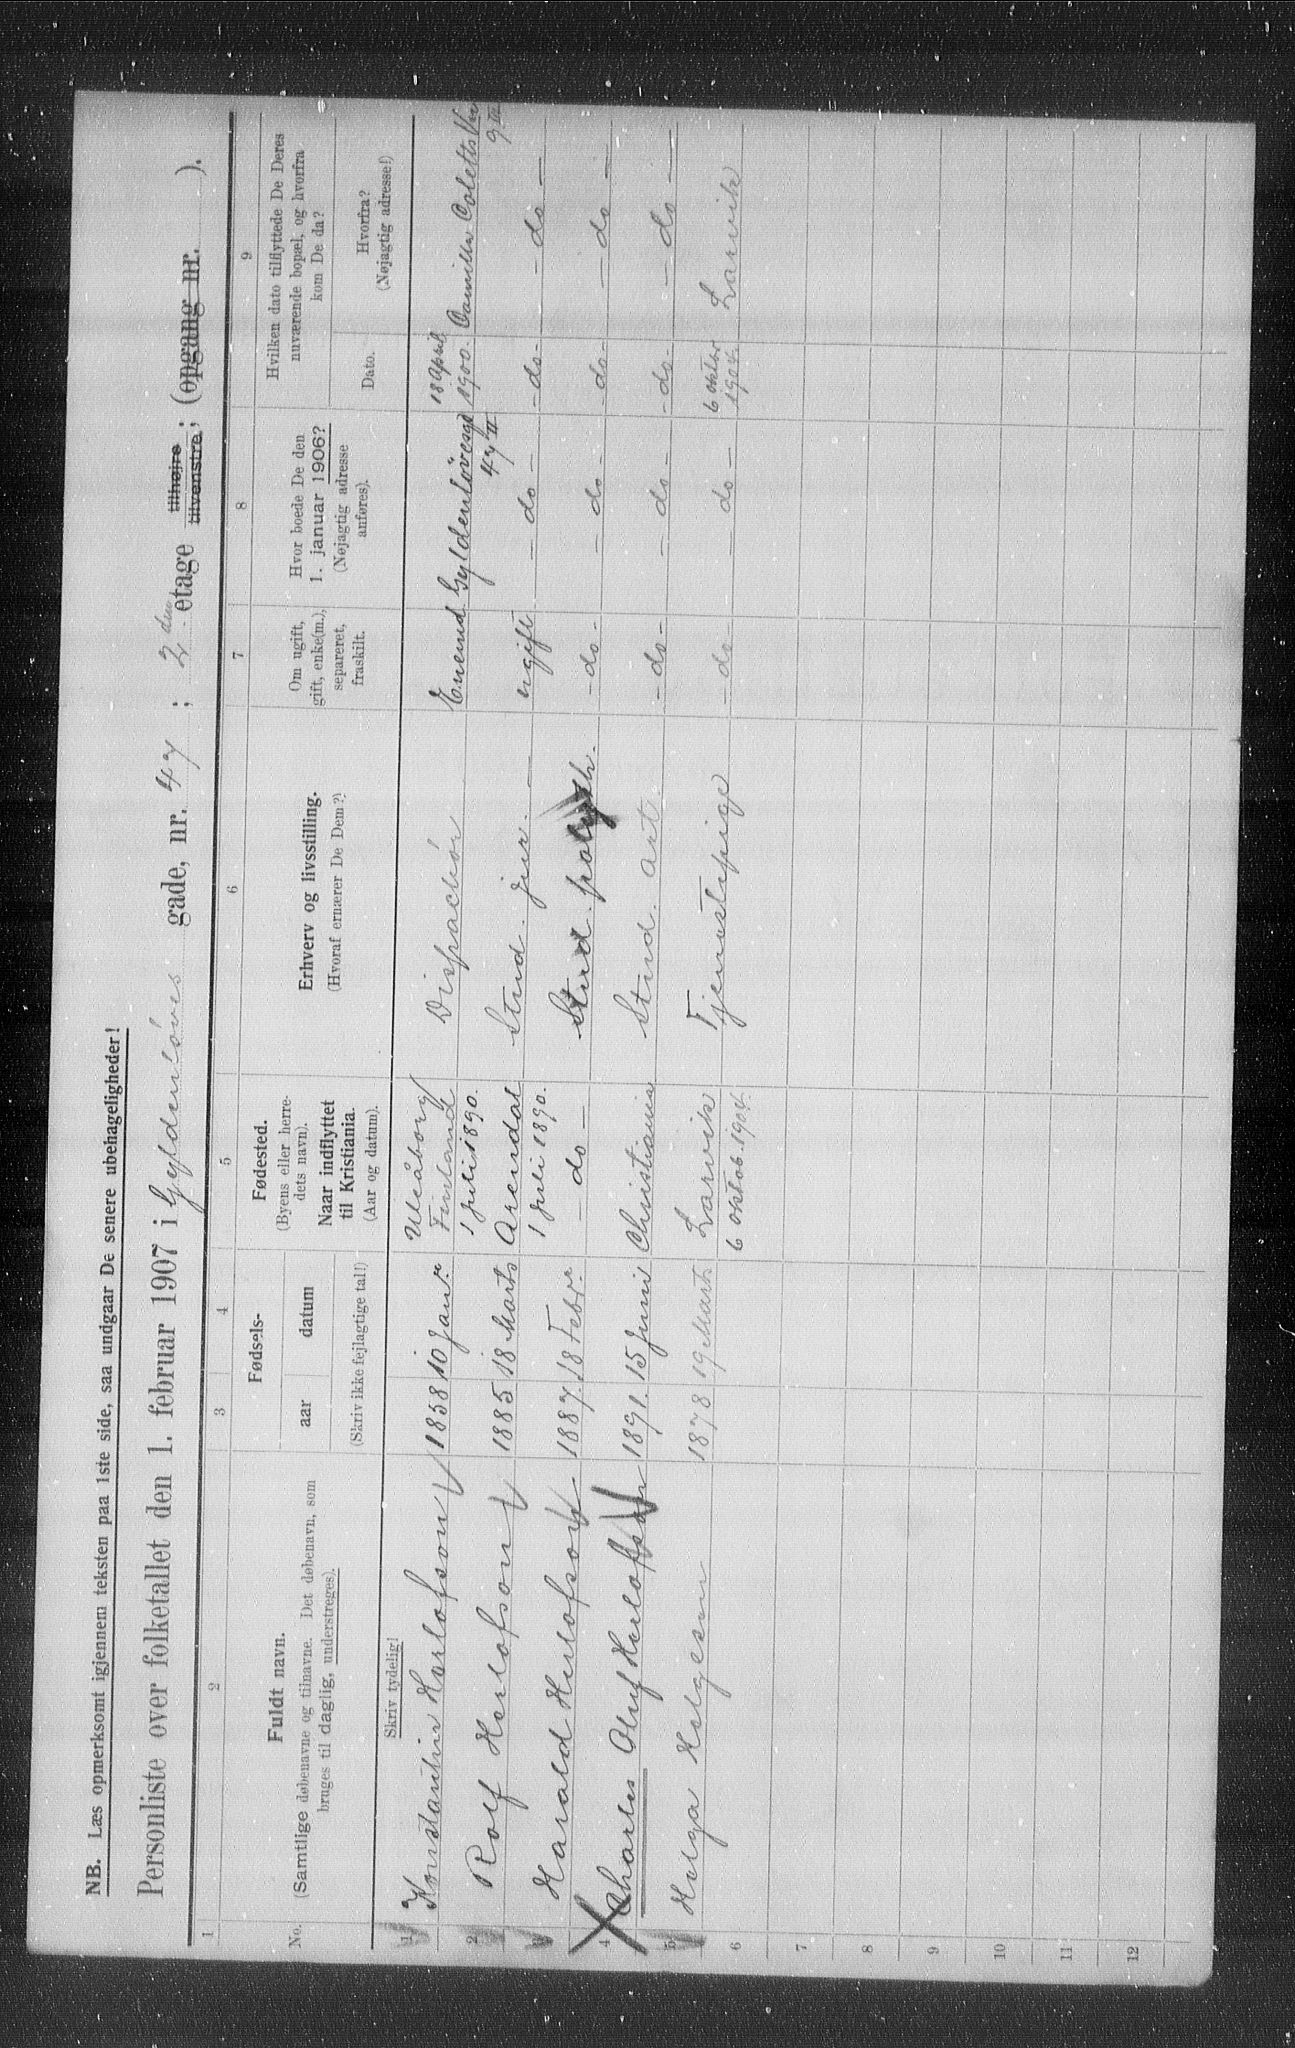 NB. Læs opmerksomt igjennem teksten paa 1ste side, saa undgaar De senere ubehageligheder!
Personliste over folketallet den 1. februar 1907 i Gyldenløves gade, nr. 47; 2den etage tilhøjre tilvenstre; (opgang nr. ).
1 2 3 4 5 6 7 8 9
No.
Fuldt navn.
(Samtlige døbenavne og tilnavne. Det døbenavn, som
bruges til daglig, understreges).
Skriv tydelig!
Fødsels-
aar datum
(Skriv ikke fejlagtige tal!)
Fødested.
(Byens eller herre-
dets navn).
Naar indflyttet
til Kristiania.
(Aar og datum).
Erhverv og livsstilling.
(Hvoraf ernærer De Dem?)
Om ugift,
gift, enke(m.),
separeret,
fraskilt.
Hvor boede De den
1. januar 1906?
(Nøjagtig adresse
anføres).
Hvilken dato tilflyttede De Deres
nuværende bopæl, og hvorfra
kom De da?
Dato.
Hvorfra?
(Nøjagtig adresse!)
1 Konstantin Herlofson 1858 10 Janr. Uleåborg Finland 1 juli 1890. Dispachør Enemd. Gyldenløvesgd 47 II 18 April 1900. Camilla Coletts 9 III
2 Rolf Herlofson 1885 18 Marts Arendal 1 juli 1890. Stud. jur. ugift - do - - do - - do -
3 Harald Herlofson 1887. 18 Febr. - do - Stud. - do - - do - - do - - do -
4 Charles Oluf Herlofson 1891. 15 Juni Christiania Stud. art. - do - - do - - do - - do -
5 Helga Helgesen 1878 19 Marts Larvik 6 oktob. 1904. Tjenestepige - do - do - 6 oktbr 1904. Larvik
6
7
8
9
10
11
12